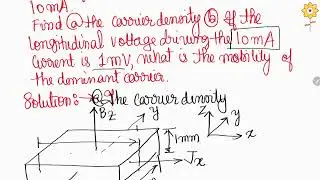 10mA.
Find ⓐ the carrier density ⓑ If the
longitudinal voltage driving the 10mA
current is 1mV, what is the mobility of
the dominant carrier.
Solution:→ ⓐ the carrier density
Bz
y
Z
y
1mm
x
Jx